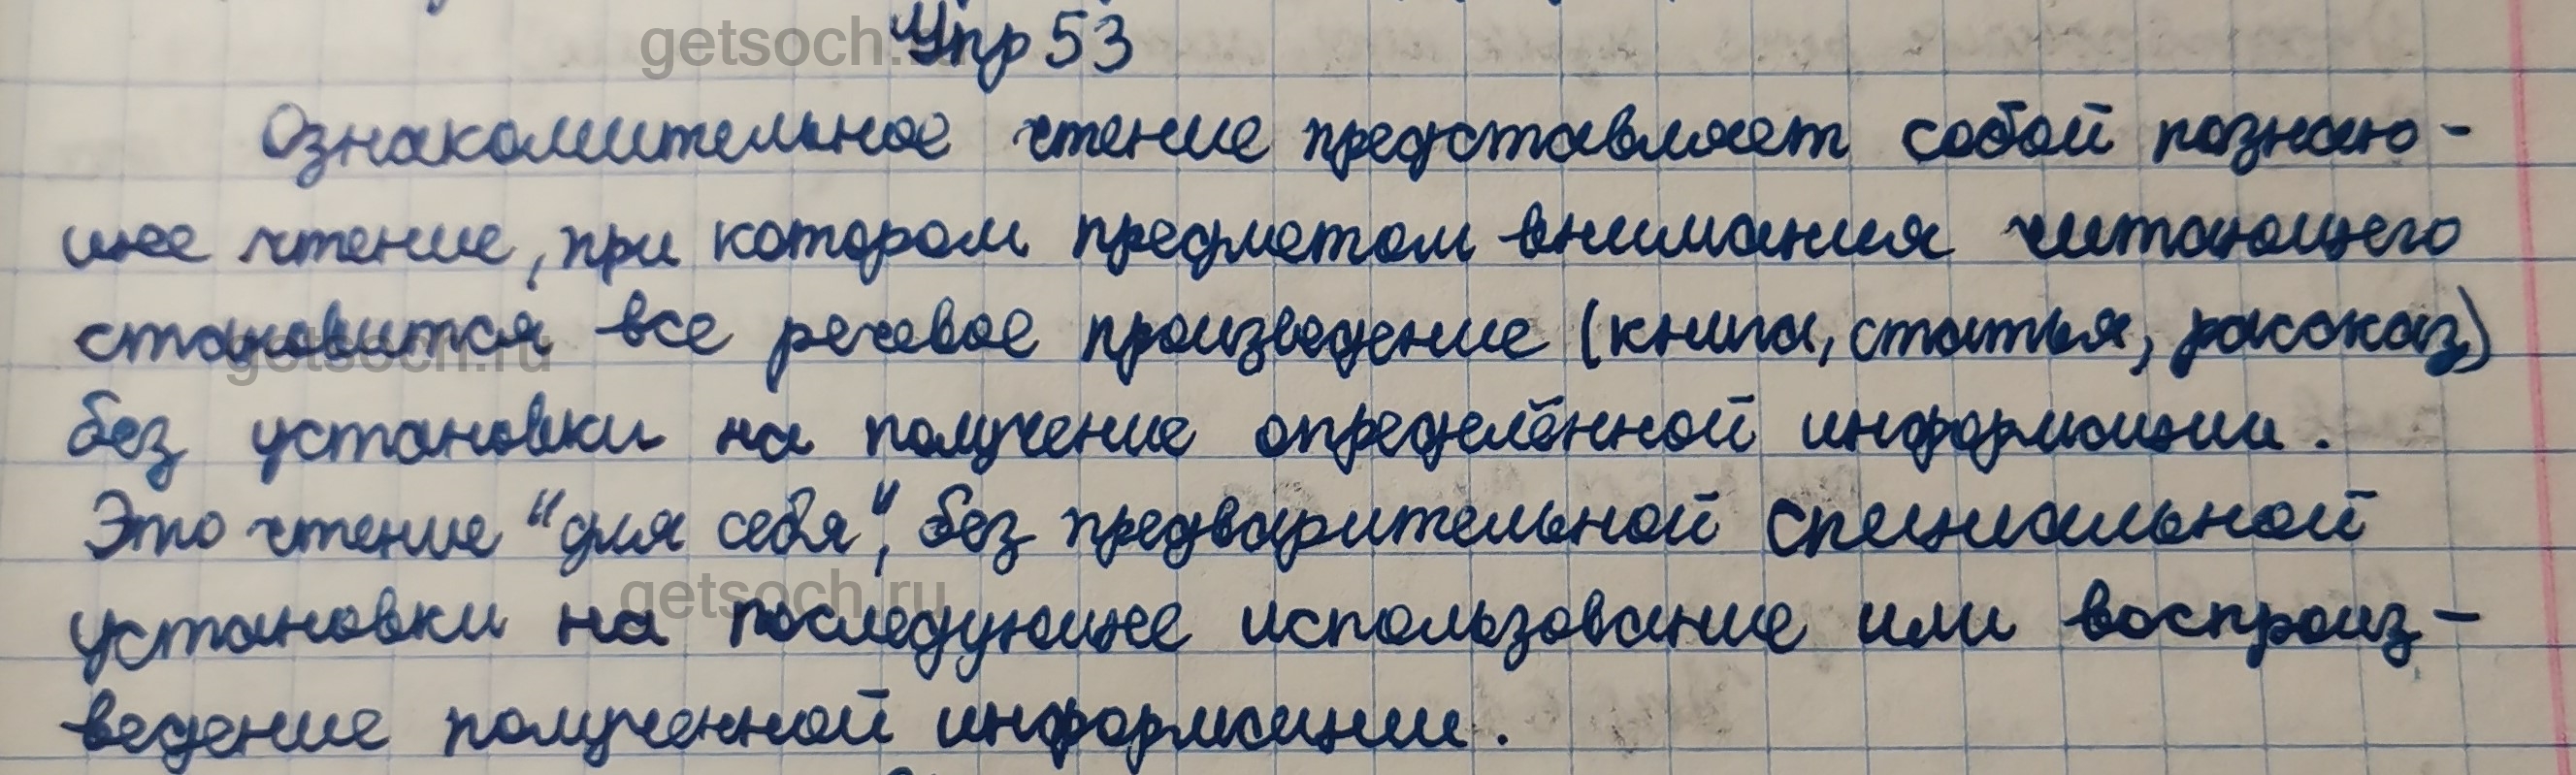 Упр 53
Ознакомительное чтение представляет собой познаю-
щее чтение, при котором предметом внимания читающего
становится все речевое произведение (книга, статья, рассказ)
без установки на получение определённой информации.
Это чтение "для себя", без предварительной специальной
установки на последующее использование или воспроиз-
ведение полученной информации.
getsoch.ru
getsoch.ru
getsoch.ru